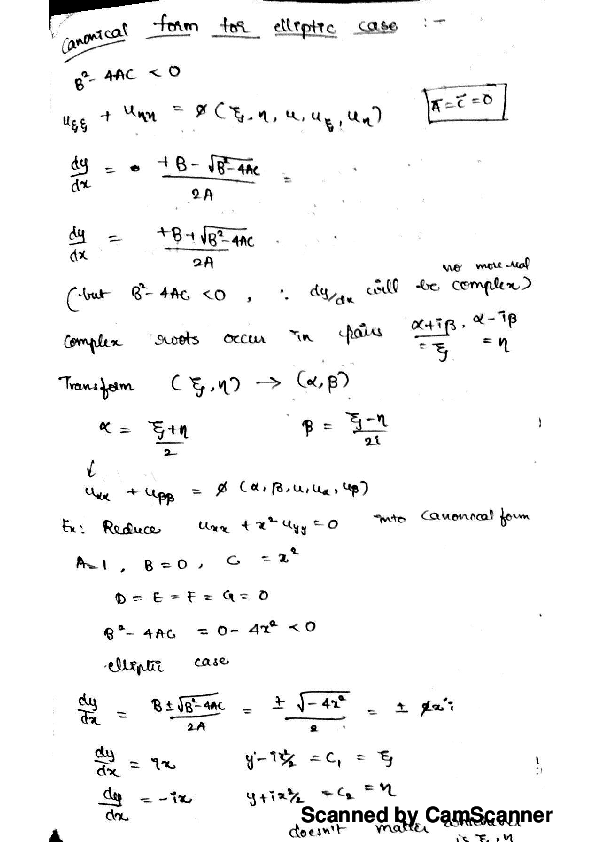 Canonical form for elliptic case :-
B² - 4AC < 0
u_ξξ + u_ηη = φ (ξ, η, u, u_ξ, u_η) Ā = C̄ = 0
dy/dx = +B - √(B² - 4AC) / 2A =
dy/dx = +B + √(B² - 4AC) / 2A
no more real
(but B² - 4AC < 0, ∴ dy/dx will be complex)
complex roots occur in pairs α+iβ = ξ, α-iβ = η
Transform (ξ, η) → (α, β)
α = (ξ+η)/2 β = (ξ-η)/2i
u_αα + u_ββ = φ (α, β, u, u_α, u_β)
Ex: Reduce u_xx + x² u_yy = 0 into canonical form
A=1, B=0, C = x²
D = E = F = G = 0
B² - 4AC = 0 - 4x² < 0
elliptic case
dy/dx = (B ± √(B² - 4AC)) / 2A = ± √(-4x²) / 2 = ± xi
dy/dx = ix y - ix²/2 = C₁ = ξ
dy/dx = -ix y + ix²/2 = C₂ = η
Scanned by CamScanner
doesn't matter
is ξ, η